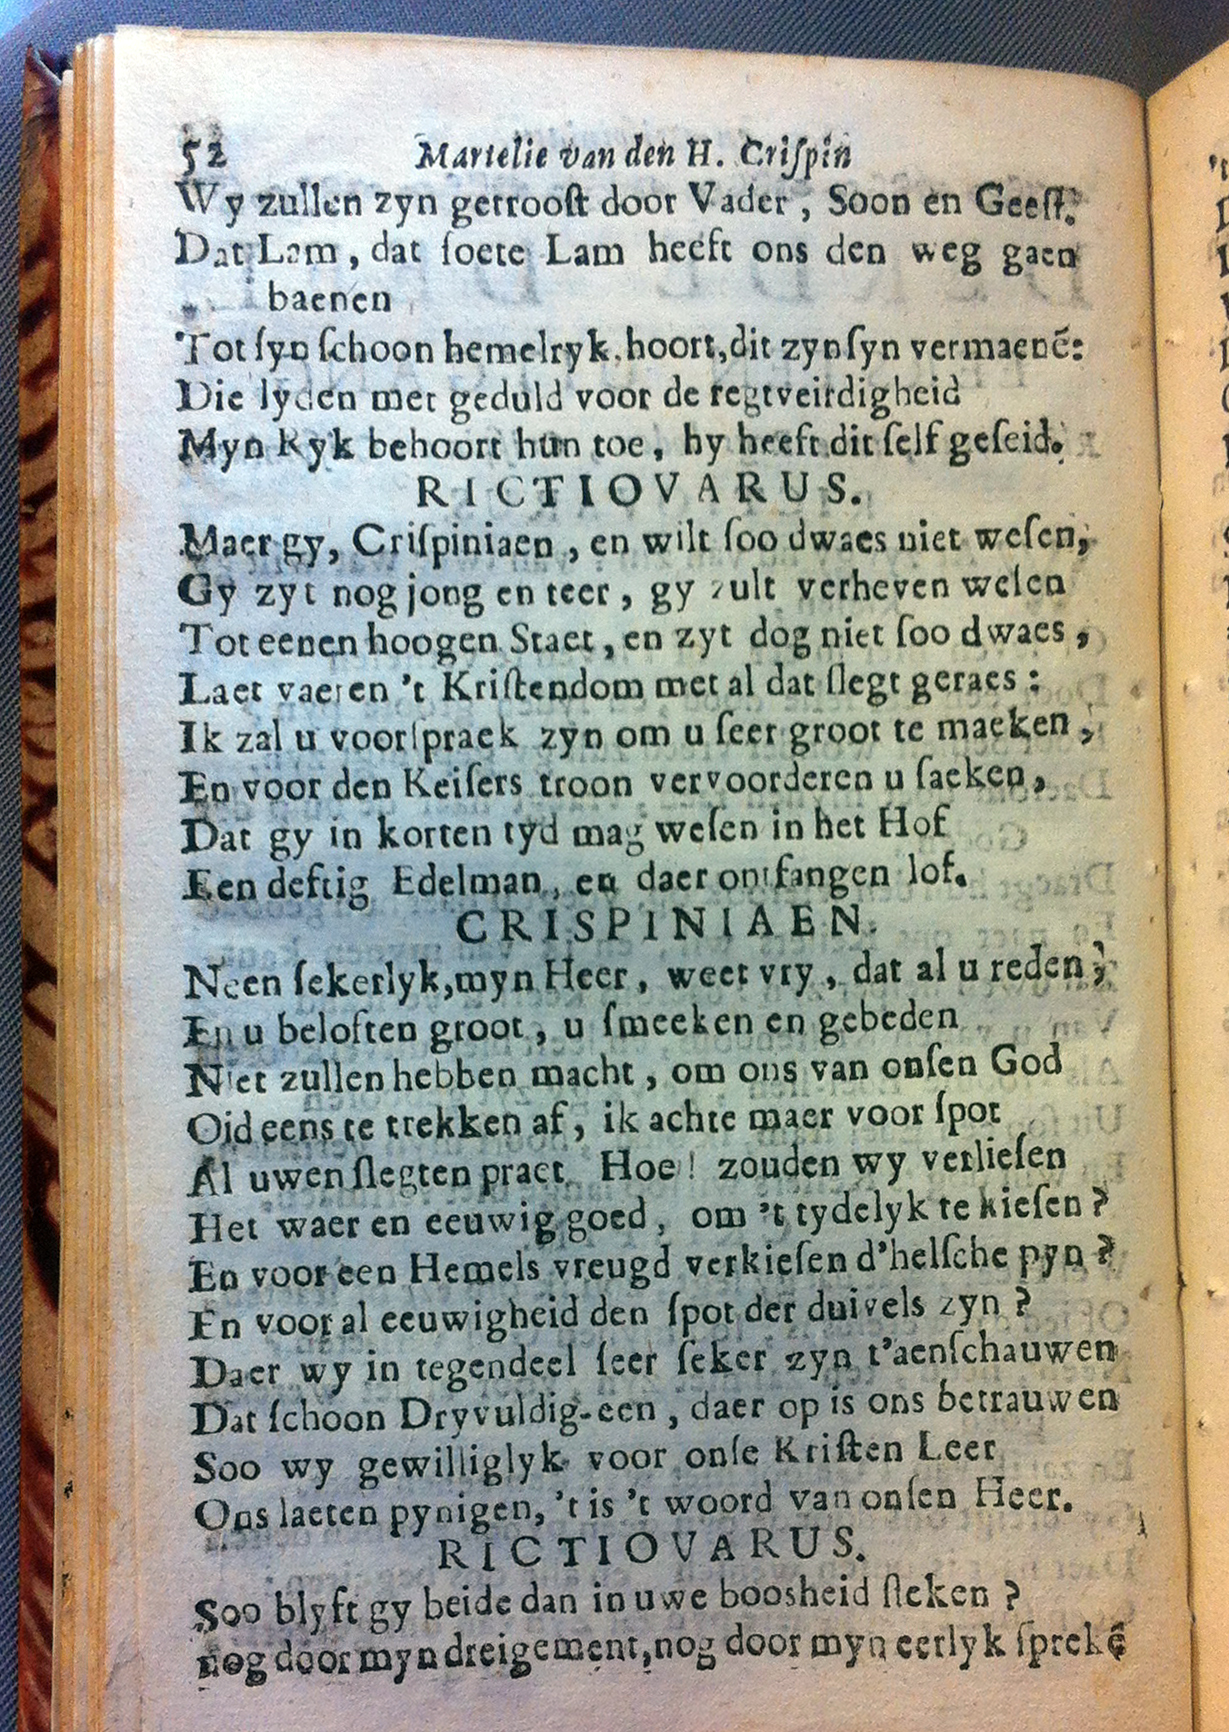 52 Martelie van den H. Criſpin
Wy zullen zyn getrooſt door Vader, Soon en Geeſt.
Dat Lam, dat ſoete Lam heeft ons den weg gaen
baenen
Tot ſyn ſchoon hemelryk, hoort, dit zyn ſyn vermaenē:
Die lyden met geduld voor de regtveirdigheid
Myn Ryk behoort hun toe, hy heeft dit ſelf geſeid.
RICTIOVARUS.
Maer gy, Criſpiniaen, en wilt ſoo dwaes niet weſen,
Gy zyt nog jong en teer, gy zult verheven weſen
Tot eenen hoogen Staet, en zyt dog niet ſoo dwaes,
Laet vaeren 't Kriſtendom met al dat ſlegt geraes:
Ik zal u voorſpraek zyn om u ſeer groot te maeken,
En voor den Keiſers troon vervoorderen u ſaeken,
Dat gy in korten tyd mag weſen in het Hof
Een deftig Edelman, en daer ontfangen lof.
CRISPINIAEN.
Neen ſekerlyk, myn Heer, weet vry, dat al u reden,
En u beloften groot, u ſmeeken en gebeden
Niet zullen hebben macht, om ons van onſen God
Oid eens te trekken af, ik achte maer voor ſpot
Al uwen ſlegten praet. Hoe! zouden wy verlieſen
Het waer en eeuwig goed, om 't tydelyk te kieſen?
En voor een Hemels vreugd verkieſen d'helſche pyn?
En voor al eeuwigheid den ſpot der duivels zyn?
Daer wy in tegendeel ſeer ſeker zyn t'aenſchauwen
Dat ſchoon Dryvuldig-een, daer op is ons betrauwen
Soo wy gewilliglyk voor onſe Kriſten Leer
Ons laeten pynigen, 't is 't woord van onſen Heer.
RICTIOVARUS.
Soo blyft gy beide dan in uwe boosheid ſteken?
nog door myn dreigement, nog door myn eerlyk ſprekē